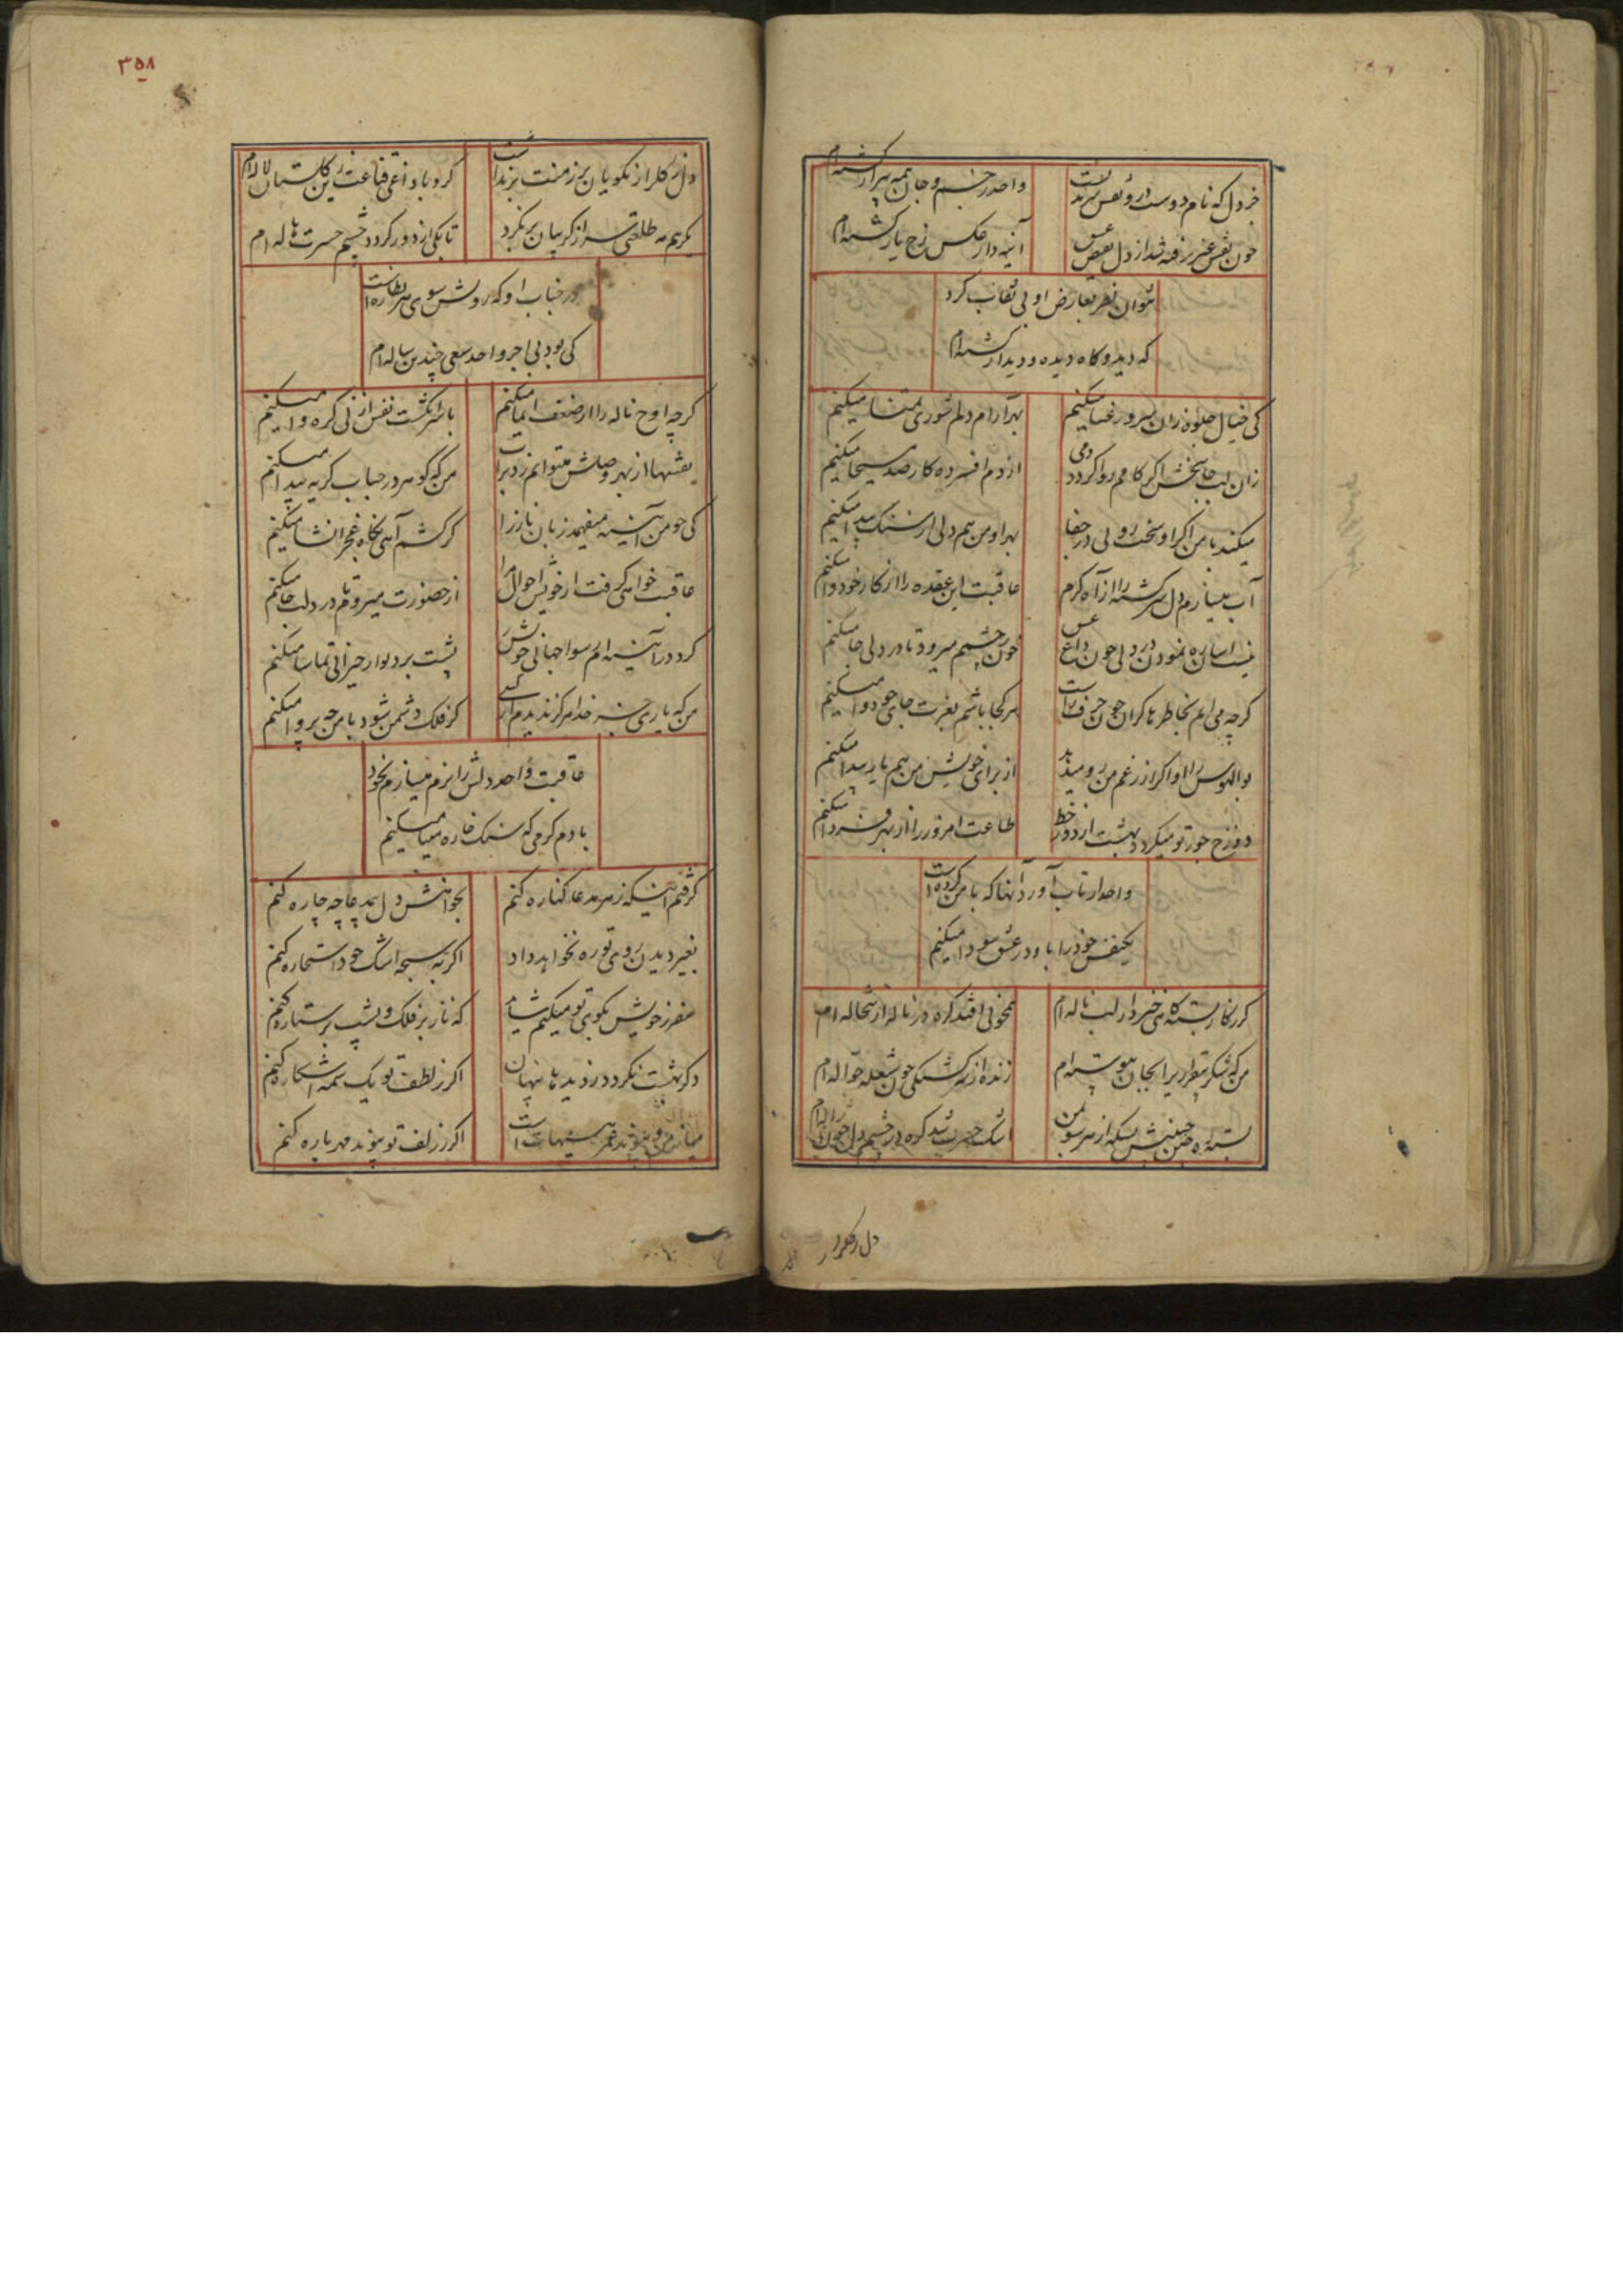 خبر دل که نام دوست درو نقش بسته است
واحد ز جسم و جان همه بیزار گشته‌ام
چون نقش غیر رفته شد از دل بعین
آئینه دار عکس رخ یار گشته‌ام
نتوان نظر بعارض او بی نقاب کرد
که دیده و گاه دیده و دیدار گشته‌ام
کی خیال جلوه زان سرو رعنا میکنم
بهر آرام دلم شوری تمنا میکنم
زان لب جانبخش اگر کامم روا گردد دمی
از دم افسرده کار صد مسیحا میکنم
میکند با من اگر او سخت رویی در جفا
بهر او من هم دلی از سنگ پیدا میکنم
آب میسازم دل سرگشته را از آه گرم
عاقبت این عقده را از کار خود وا میکنم
نیست آسان ره نمودن در دلی چون داغ عشق
خون ز چشمم میرود تا در دلی جا میکنم
گرچه می‌آیم بخاطرها گران چون حرف راست
هر کجا باشم بغیرت جای خود وا میکنم
بوالهوس را او اگر از رغم من رو میدهد
از برای خویش من هم یار پیدا میکنم
دوزخ جور تو میگردد بهشت از دور خط
طاعت امروز را از بهر فردا میکنم
واحد ار تاب آورد آنها که با من کرده است
یکنفس خود را باو در عشق سودا میکنم
من که شکر
زنده از سرگشتگی چون شعله جواله‌ام
اشک حسرت شد گره در چشم دل چون ژاله‌ام
دل ز کلزار
۳۵۸
دل ز کلزار نکویان برزمنت برنداشت
کرد با داغی قناعت زین گلستان لاله‌ام
گر بهم مه طلعتی سر از گریبان بر نکرد
تا بکی از دور گردد چشم حسرت هاله‌ام
در جناب او که روشن سوی هر نظاره است
کی بود بی اجر واحد سعی چندین ساله‌ام
گرچه اوج ناله را از ضعف ایما میکنم
با سرانگشت نفس از نی گره وا میکنم
نقشها از بهر وصلش میتوانم زد بر آب
من که گوهر در حباب گریه پیدا میکنم
کی چو من آئینه میفهمد زبان ناز را
گر کشم آهی نگاه عجز انشا میکنم
عاقبت خواهی گرفت از خویش احوال مرا
از حضورت میروم تا در دلت جا میکنم
کرد در آئینه‌ام رسوا جهانی خویش
پشت بر دیوار حیرانی تماشا میکنم
من که یاری جز خدا هرگز ندیدم از کسی
گر فلک دشمن شود با من چه پروا میکنم
عاقبت واحد دلش را نرم میسازم بخود
با دم گرمی که سنگ خاره مینا میکنم
گرفتم اینکه ز هر مدعا کناره کنم
بخواهش دل بیمدعا چه چاره کنم
بغیر دیدن روی تو ره نخواهد داد
اگر به سبحه اشک خود استخاره کنم
سفر ز خویش بکوی تو میکنم شبها
که ناز بر فلک و پشت بر ستاره کنم
دگر بهشت نگردد ز دیده‌ها پنهان
اگر ز لطف تو یک شمه آشکاره کنم
اگر ز زلف تو پیوند مهر پاره کنم